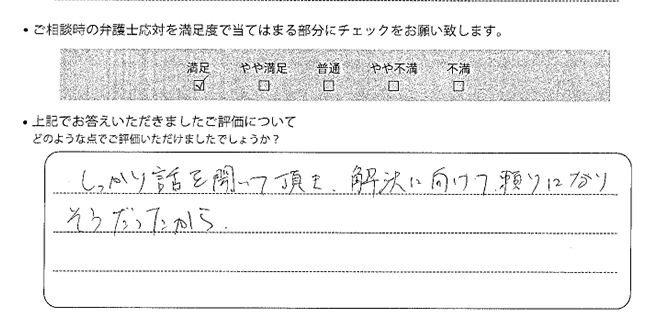 ・ご相談時の弁護士応対を満足度で当てはまる部分にチェックをお願い致します。
満足 やや満足 普通 やや不満 不満
☑ □ □ □ □
・上記でお答えいただきましたご評価について
どのような点でご評価いただけましたでしょうか？
しっかり話を聞いて頂き、解決に向けて頼りになり
そうだったから。